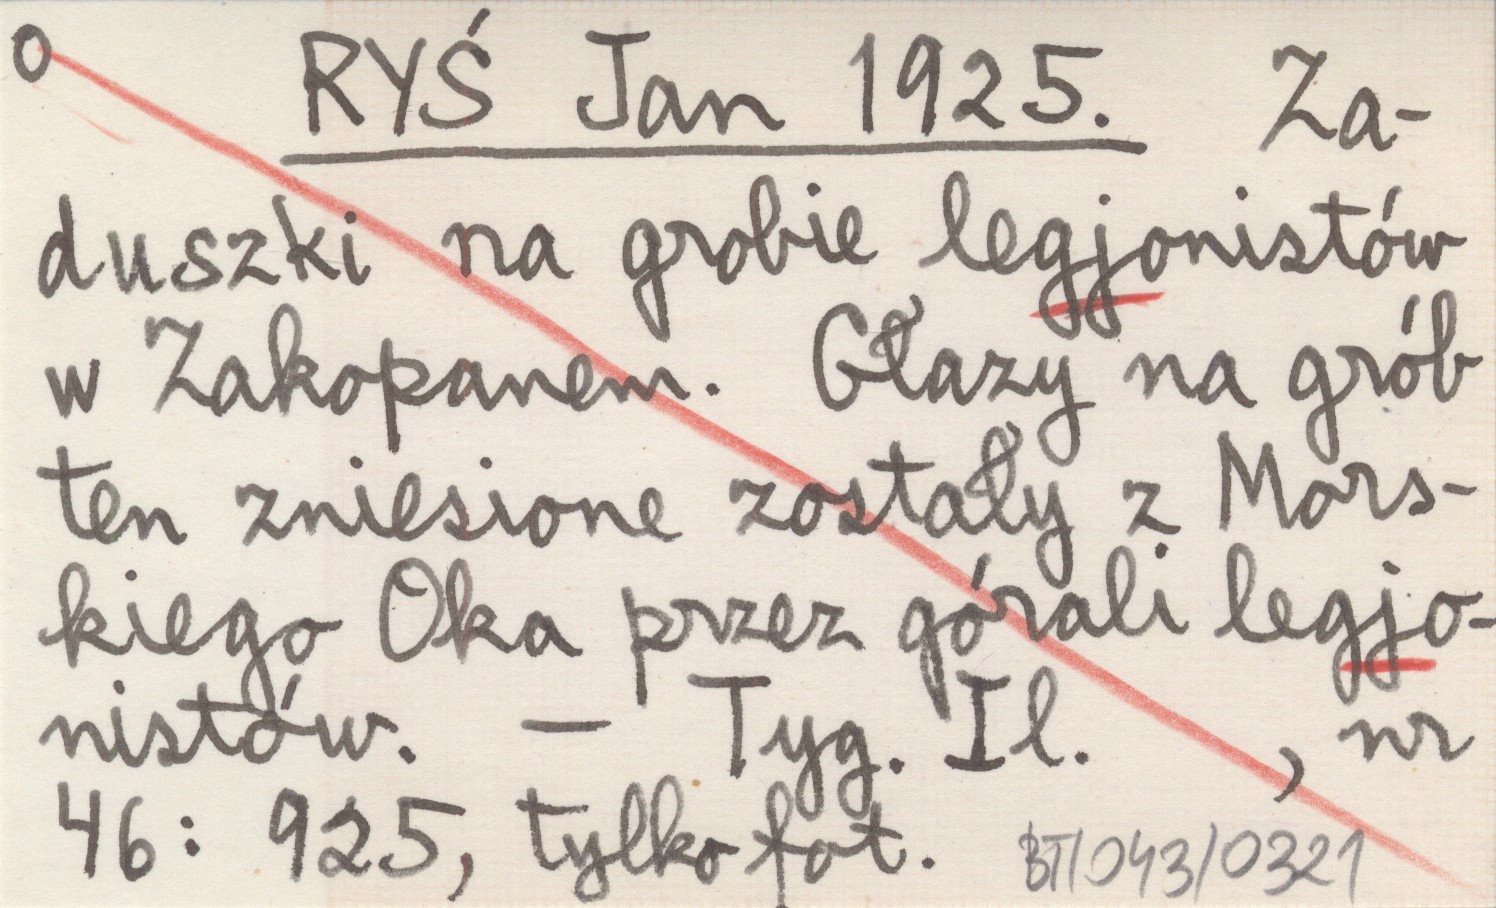 O RYŚ Jan 1925. Za-
duszki na grobie legjonistów
w Zakopanem. Głazy na grób
ten zniesione zostały z Mors-
kiego Oka przez górali legjo-
nistów. — Tyg. Il. , nr
46: 925, tylko fot. BT/043/0321